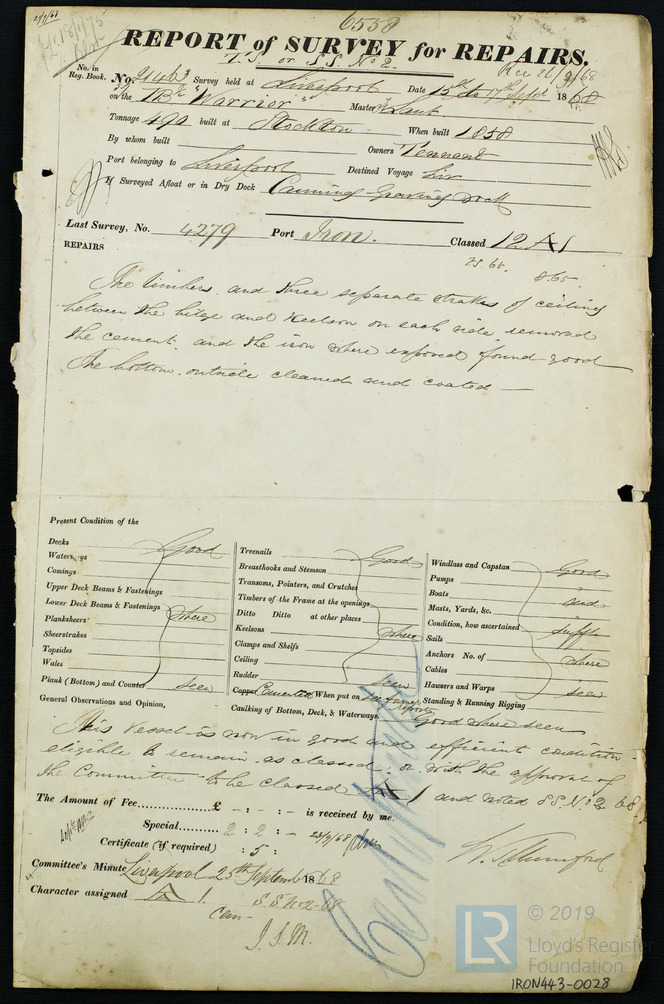 6558
REPORT of SURVEY for REPAIRS.
or S.S. No 2.
Rec 26/9/68
No. in Reg. Book.
No. Survey held at Liverpool Date 15th to 17th Sept 1868
on the Bk "Warrier" Master
Tonnage 490 built at Stockton When built 1858
By whom built Owners Tennant
Port belonging to Liverpool Destined Voyage
If Surveyed Afloat or in Dry Dock Canning Graving Dock
Last Survey, No. 4279 Port Iron. Classed 12 A1
REPAIRS
The timbers and three separate strakes of ceiling
between the bilge and Keelson on each side removed
the cement and the iron where exposed found good
The bottom outside cleaned and coated —
Present Condition of the
Decks Good
Waterways
Comings
Upper Deck Beams & Fastenings
Lower Deck Beams & Fastenings where
Planksheers
Sheerstrakes
Topsides
Wales
Plank (Bottom) and Counter seen
Treenails Good
Breasthooks and Stemson
Transoms, Pointers, and Crutches
Timbers of the Frame at the openings
Ditto Ditto at other places
Keelsons where
Clamps and Shelfs
Ceiling
Rudder seen
Copper Cemented When put on see former reports
Caulking of Bottom, Deck, & Waterways,
Windlass and Capstan Good
Pumps
Boats and
Masts, Yards, &c.
Condition, how ascertained
Sails
Anchors No. of where
Cables
Hausers and Warps seen
Standing & Running Rigging
Good where seen
General Observations and Opinion,
This Vessel is now in good and efficient condition
eligible to remain as classed, or with the approval of
the Committee to be classed A1 and noted S.S. No 2 68.
The Amount of Fee............... £ - : - : - is received by me.
Special............ 2 : 2 : - 23/9/68
Certificate (if required) : 5 :
W. Mumford
Committee's Minute Liverpool 25th September 1868
Character assigned A 1.
S.S No 2-68
J.S.M.
© 2019
LR
Lloyd's Register
Foundation
IRON443-0028